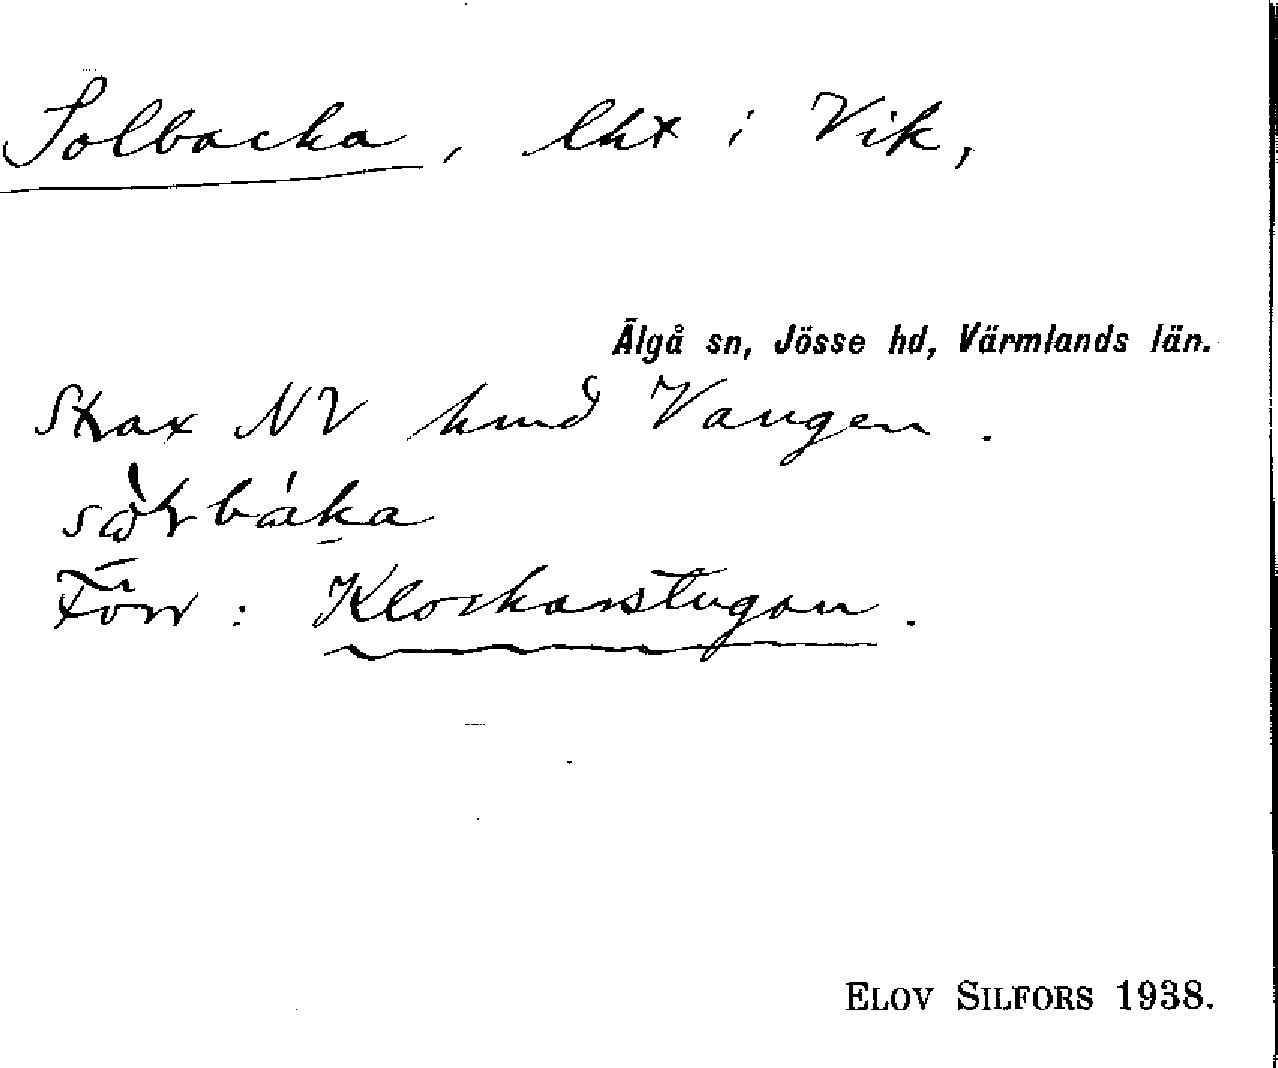 Solbacka, lht i Vik,
Älgå sn, Jösse hd, Värmlands län.
Strax NV hmd Vangen.
Förr: Klockarstugan.
ELOV SILFORS 1938.